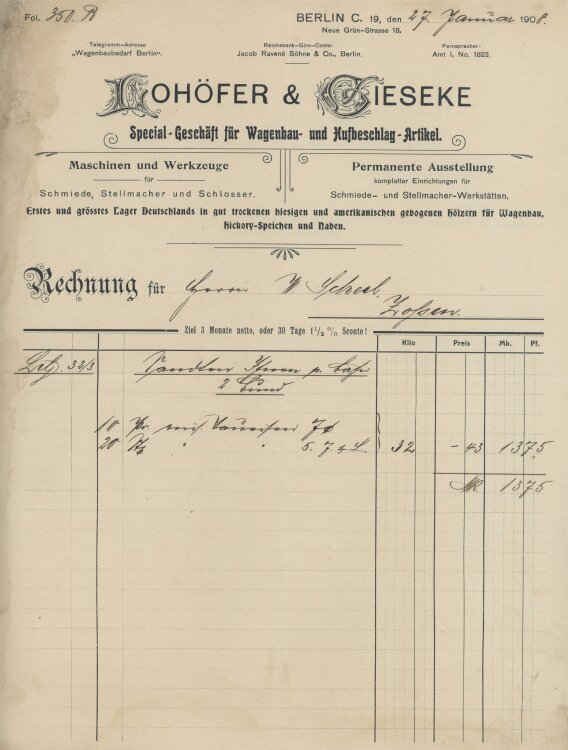 Fol. 350. B
BERLIN C. 19, den 27. Januar 1908.
Neue Grün-Strasse 18.
Telegramm-Adresse
„Wagenbaubedarf Berlin".
Reichsbank-Giro-Conto:
Jacob Ravené Söhne & Co., Berlin.
Fernsprecher:
Amt I, No. 1823.
LOHÖFER & GIESEKE
Special-Geschäft für Wagenbau- und Hufbeschlag-Artikel.
Maschinen und Werkzeuge
für
Schmiede, Stellmacher und Schlosser.
Permanente Ausstellung
kompletter Einrichtungen für
Schmiede- und Stellmacher-Werkstätten.
Erstes und grösstes Lager Deutschlands in gut trockenen hiesigen und amerikanischen gebogenen Hölzern für Wagenbau,
Hickory-Speichen und Naben.
Rechnung für Herrn W Scheel,
Zossen.
Ziel 3 Monate netto, oder 30 Tage 1½ % Sconto!
Kilo Preis Mk. Pf.
32/3 Sandten Ihnen p. Bahn
2 Bund
10
20 " " 32 - 43 13 75
Mk. 13 75